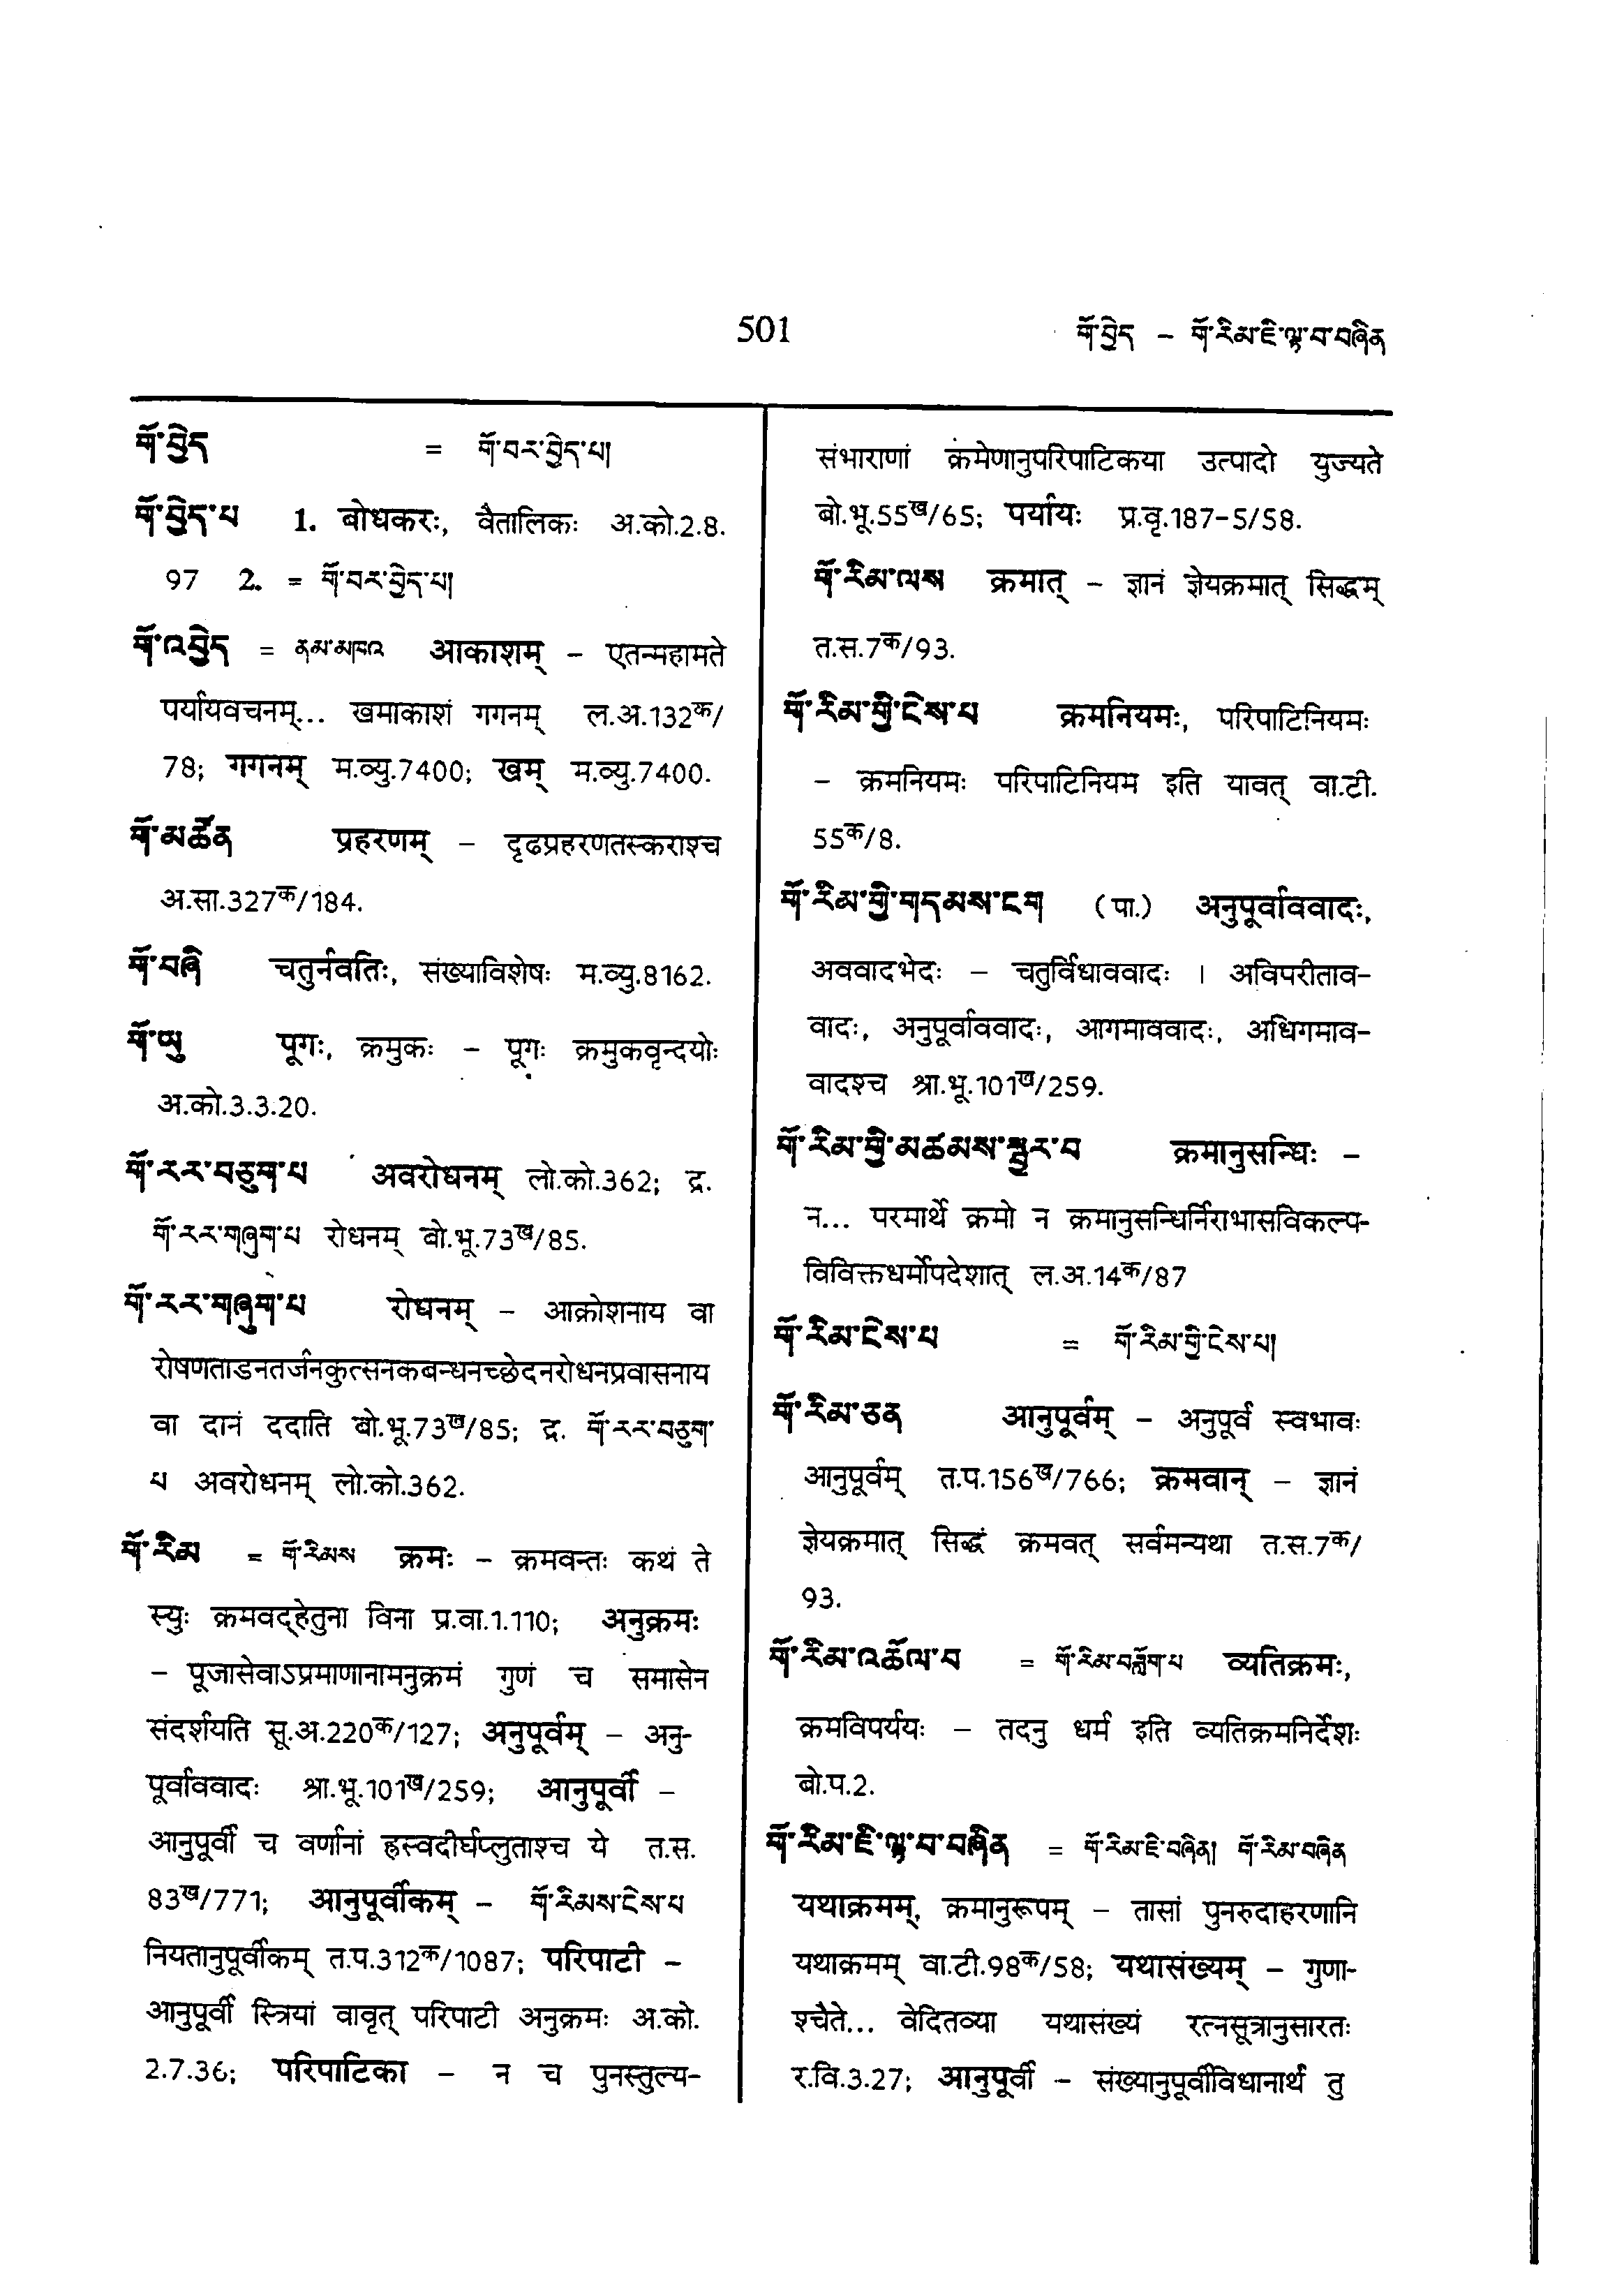 501
གོ་བྱེད – གོ་རིམ་ཇི་ལྟ་བ་བཞིན
གོ་བྱེད = གོ་བར་བྱེད་པ།
གོ་བྱེད་པ 1. बोधकरः, वैतालिकः अ.को.2.8.
97 2. = གོ་བར་བྱེད་པ།
གོ་འབྱེད = ནམ་མཁའ आकाशम् – एतन्महामते
पर्यायवचनम्... खमाकाशं गगनम् ल.अ.132क/
78; गगनम् म.व्यु.7400; खम् म.व्यु.7400.
གོ་མཚོན प्रहरणम् – दृढप्रहरणतस्कराश्च
अ.सा.327क/184.
གོ་བཞི चतुर्नवतिः, संख्याविशेषः म.व्यु.8162.
གོ་ཡུ पूगः, क्रमुकः – पूगः क्रमुकवृन्दयोः
अ.को.3.3.20.
གོ་རར་བཅུག་པ अवरोधनम् लो.को.362; द्र.
གོ་རར་གཞུག་པ रोधनम् बो.भू.73ख/85.
གོ་རར་གཞུག་པ रोधनम् – आक्रोशनाय वा
रोषणताडनतर्जनकुत्सनकबन्धनच्छेदनरोधनप्रवासनाय
वा दानं ददाति बो.भू.73ख/85; द्र. གོ་རར་བཅུག་
པ अवरोधनम् लो.को.362.
གོ་རིམ = གོ་རིམས क्रमः – क्रमवन्तः कथं ते
स्युः क्रमवद्हेतुना विना प्र.वा.1.110; अनुक्रमः
– पूजासेवाऽप्रमाणानामनुक्रमं गुणं च समासेन
संदर्शयति सू.अ.220क/127; अनुपूर्वम् – अनु-
पूर्वाववादः श्रा.भू.101ख/259; आनुपूर्वी –
आनुपूर्वी च वर्णानां ह्रस्वदीर्घप्लुताश्च ये त.स.
83ख/771; आनुपूर्वीकम् – གོ་རིམས་ངེས་པ
नियतानुपूर्वीकम् त.प.312क/1087; परिपाटी –
आनुपूर्वी स्त्रियां वावृत् परिपाटी अनुक्रमः अ.को.
2.7.36; परिपाटिका – न च पुनस्तुल्य-
संभाराणां क्रमेणानुपरिपाटिकया उत्पादो युज्यते
बो.भू.55ख/65; पर्यायः प्र.वृ.187-5/58.
གོ་རིམ་ལས क्रमात् – ज्ञानं ज्ञेयक्रमात् सिद्धम्
त.स.7क/93.
གོ་རིམ་གྱི་ངེས་པ क्रमनियमः, परिपाटिनियमः
– क्रमनियमः परिपाटिनियम इति यावत् वा.टी.
55क/8.
གོ་རིམ་གྱི་གདམས་ངག (पा.) अनुपूर्वाववादः,
अववादभेदः – चतुर्विधाववादः । अविपरीताव-
वादः, अनुपूर्वाववादः, आगमाववादः, अधिगमाव-
वादश्च श्रा.भू.101ख/259.
གོ་རིམ་གྱི་མཚམས་སྦྱར་བ क्रमानुसन्धिः –
न... परमार्थे क्रमो न क्रमानुसन्धिर्निराभासविकल्प-
विविक्तधर्मोपदेशात् ल.अ.14क/87
གོ་རིམ་ངེས་པ = གོ་རིམ་གྱི་ངེས་པ།
གོ་རིམ་ཅན आनुपूर्वम् – अनुपूर्व स्वभावः
आनुपूर्वम् त.प.156ख/766; क्रमवान् – ज्ञानं
ज्ञेयक्रमात् सिद्धं क्रमवत् सर्वमन्यथा त.स.7क/
93.
གོ་རིམ་འཚོལ་བ = གོ་རིམ་བཟློག་པ व्यतिक्रमः,
क्रमविपर्ययः – तदनु धर्म इति व्यतिक्रमनिर्देशः
बो.प.2.
གོ་རིམ་ཇི་ལྟ་བ་བཞིན = གོ་རིམ་ཇི་བཞིན། གོ་རིམ་བཞིན
यथाक्रमम्, क्रमानुरूपम् – तासां पुनरुदाहरणानि
यथाक्रमम् वा.टी.98क/58; यथासंख्यम् – गुणा-
श्चैते... वेदितव्या यथासंख्यं रत्नसूत्रानुसारतः
र.वि.3.27; आनुपूर्वी – संख्यानुपूर्वीविधानार्थं तु